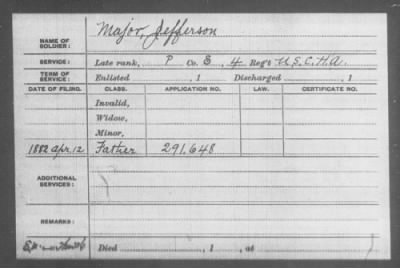 NAME OF SOLDIER: Major, Jefferson
SERVICE: Late rank, P Co. S, 4 Reg't U.S.C.H.A.
TERM OF SERVICE: Enlisted , 1 Discharged , 1
DATE OF FILING. CLASS. APPLICATION NO. LAW. CERTIFICATE NO.
Invalid,
Widow,
Minor,
1882 Apr. 12 Father 291.648
ADDITIONAL SERVICES:
REMARKS:
Died , 1 , at